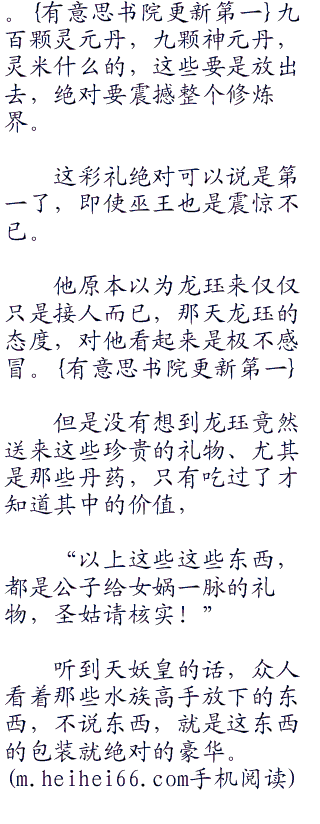 。{有意思书院更新第一}九
百颗灵元丹，九颗神元丹，
灵米什么的，这些要是放出
去，绝对要震撼整个修炼
界。
这彩礼绝对可以说是第
一了，即使巫王也是震惊不
已。
他原本以为龙珏来仅仅
只是接人而已，那天龙珏的
态度，对他看起来是极不感
冒。{有意思书院更新第一}
但是没有想到龙珏竟然
送来这些珍贵的礼物、尤其
是那些丹药，只有吃过了才
知道其中的价值，
“以上这些这些东西，
都是公子给女娲一脉的礼
物，圣姑请核实！”
听到天妖皇的话，众人
看着那些水族高手放下的东
西，不说东西，就是这东西
的包装就绝对的豪华。
(m.heihei66.com手机阅读)